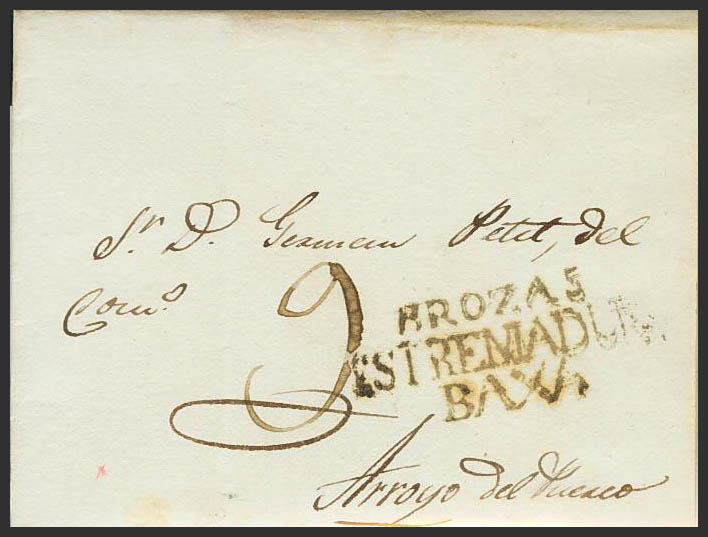 Sr. D. German Petit, del
Com.o
9
BROZAS
ESTREMADURA
BAXA
Arroyo del Puerco